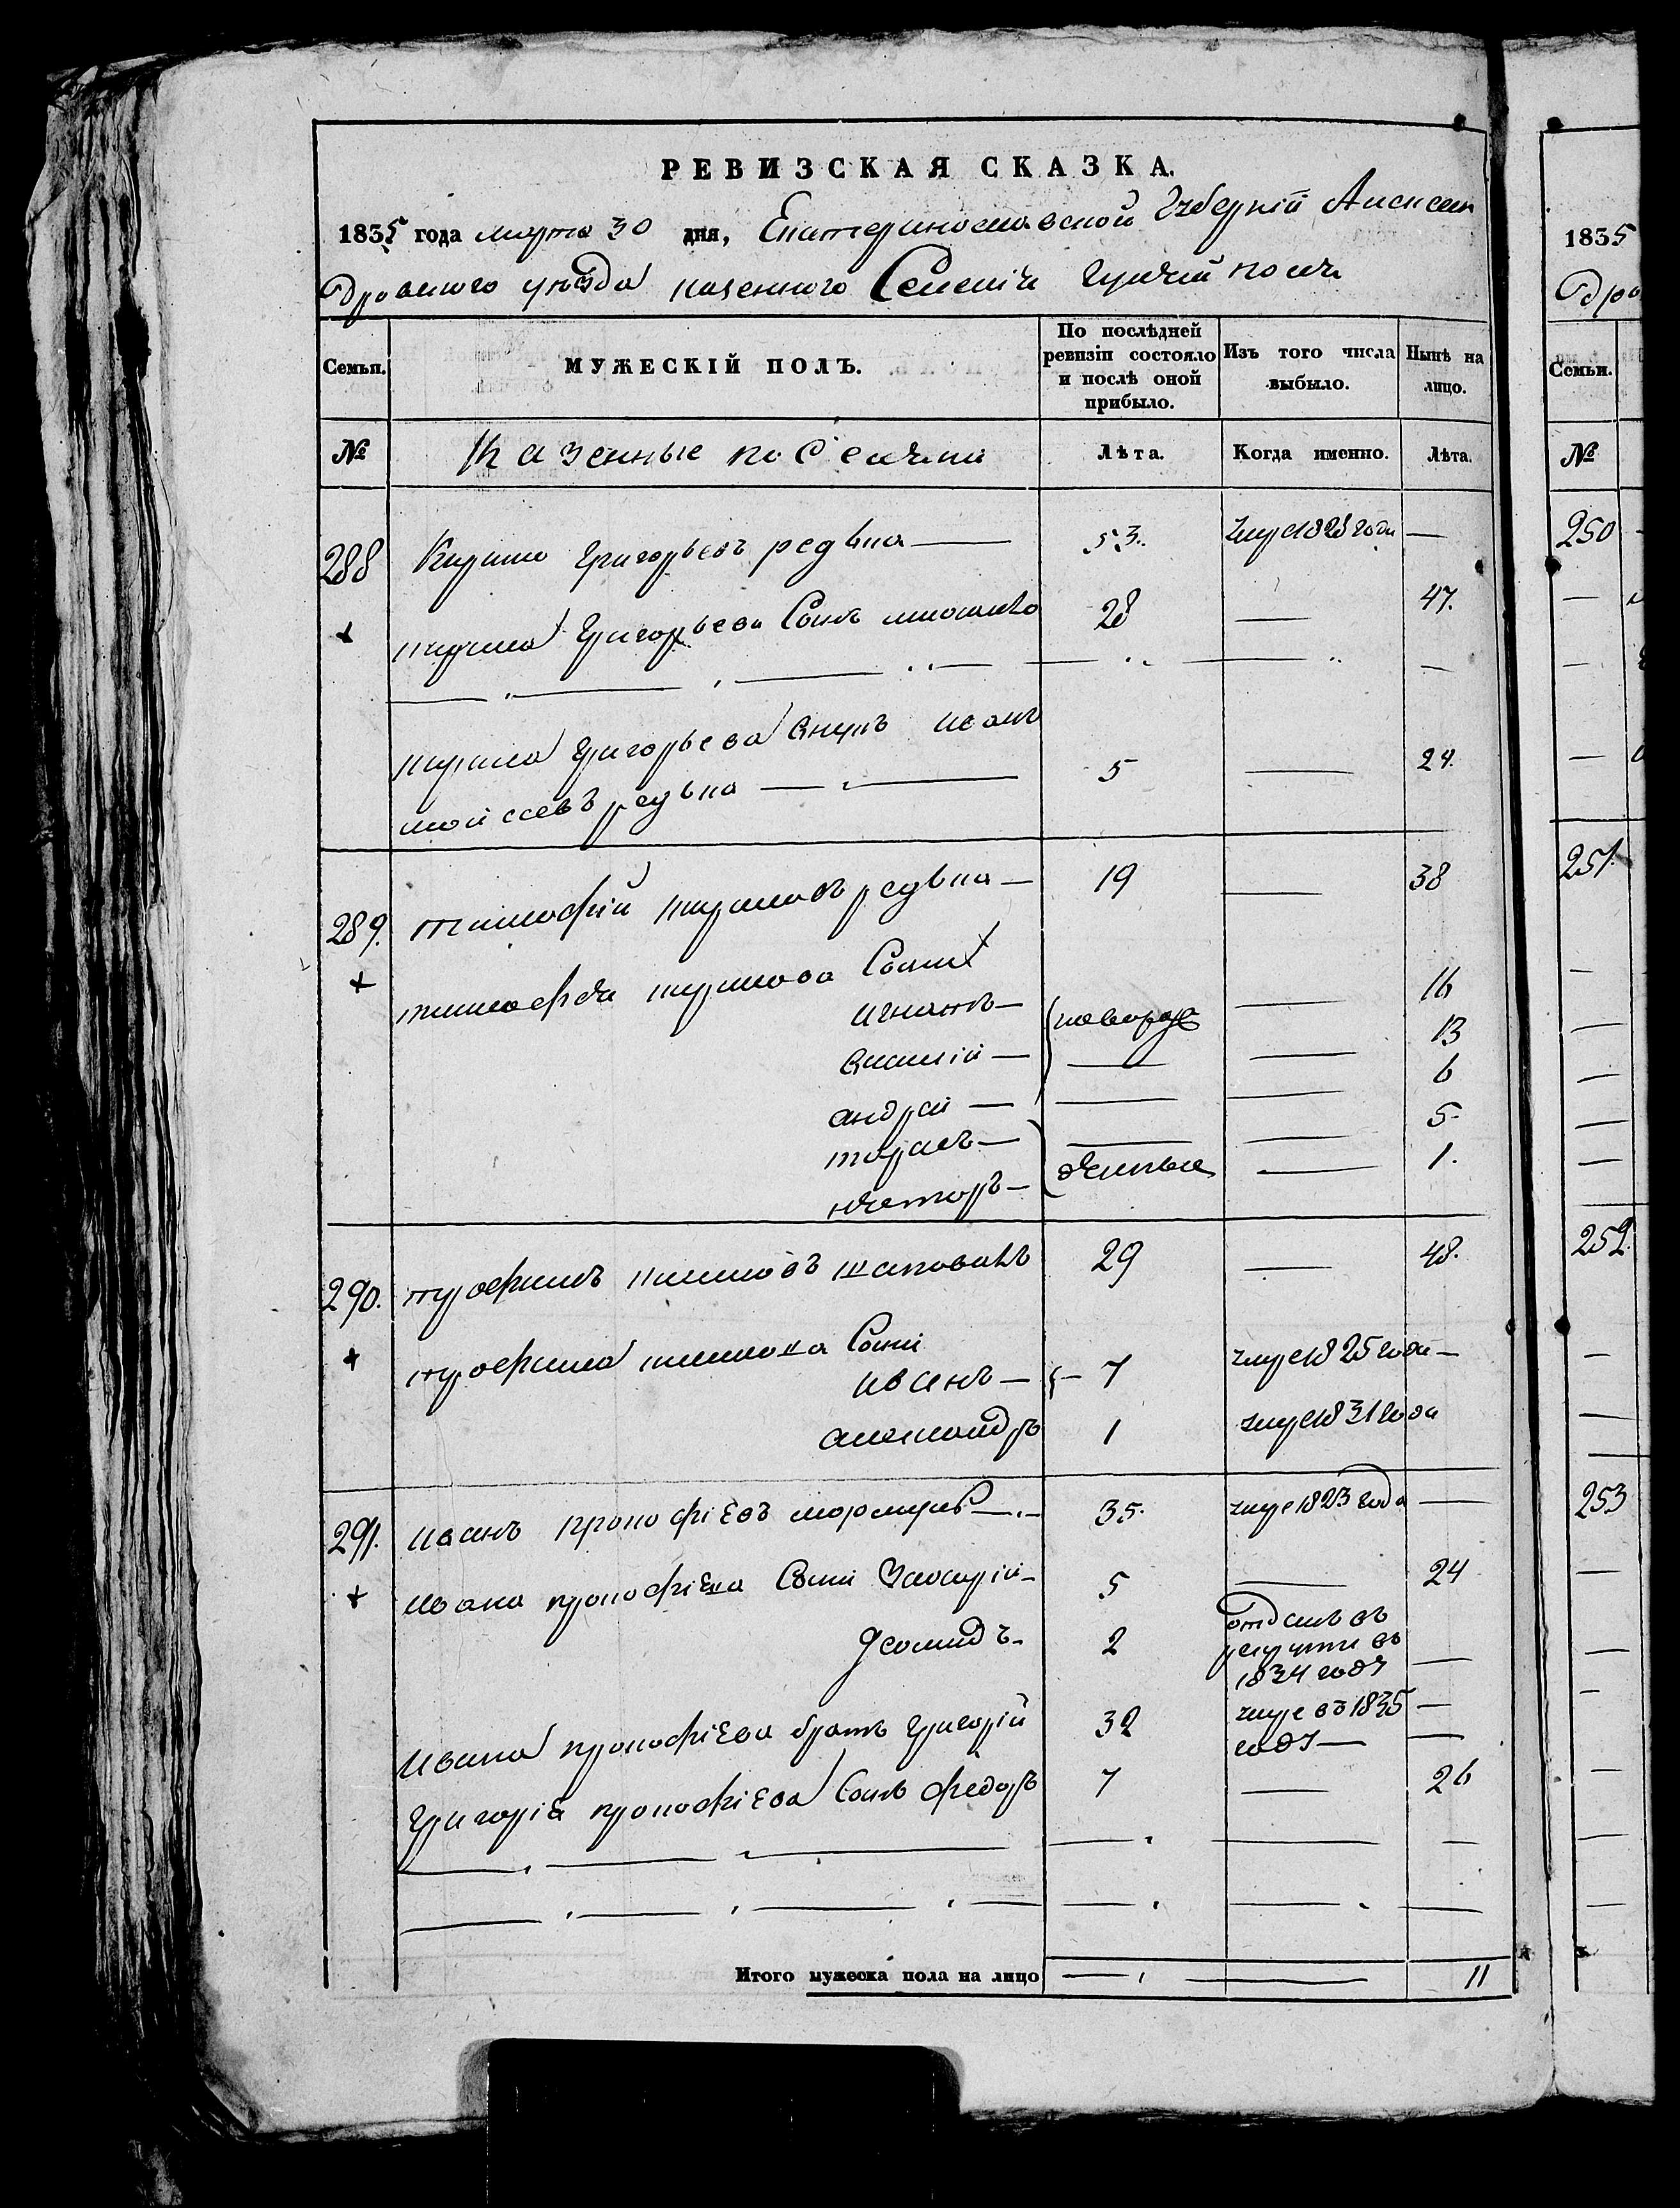 РЕВИЗСКАЯ СКАЗКА.
1835 года марта 30 дня, Екатеринославской Губерніи Алексан
дровского уезда казенного Селенія
Семьи.
МУЖЕСКІЙ ПОЛЪ.
По послѣдней ревизіи состояло и послѣ оной прибыло.
Изъ того числа выбыло.
Нынѣ на лицо.
№
Казенные поселяни
Лѣта.
Когда именно.
Лѣта.
288 Кирило Григорьевъ редька — 53. умре 1828 года —
кирила Григорьева Сынъ 28 — 47.
кирила Григорьева внукъ иванъ
моисеевъ редька — 5 — 24.
289. тимофій кириловъ редька — 19 — 38
тимофея кирилова Сыни
игнатъ — новорож — 16
василій — — — 13
андрей — — — 6
тарасъ — — — 5
несторъ — денные — 1.
290. трофимъ климовъ шаповалъ 29 — 48.
трофима климова Сыни
иванъ — 7 умре 1825 года —
александръ 1 умре 1831 года
291. иванъ прокофіевъ — 35. умре 1823 года —
ивана прокофіева Сыни Захарій — 5 — 24
Деомидъ — 2 отданъ въ
рекруты въ
1834 году —
ивана прокофіева братъ григорій 32 умре въ 1835 —
году — —
григорія прокофіева Сынъ федоръ 7 — 26
Итого мужеска пола на лицо — — 11
1835
дро
Семьи.
№
250
251.
252.
253